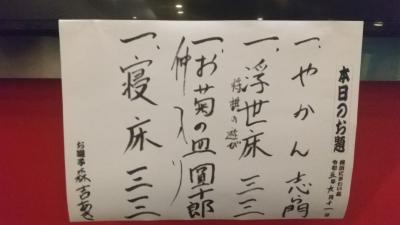 本日のお題
令和五年六月十一日
一、やかん 志ん門
一、浮世床 三三
将棋の遊び
一、お菊の皿 圓十郎
仲入り
一、寝床 三三
お囃子 森吉あき